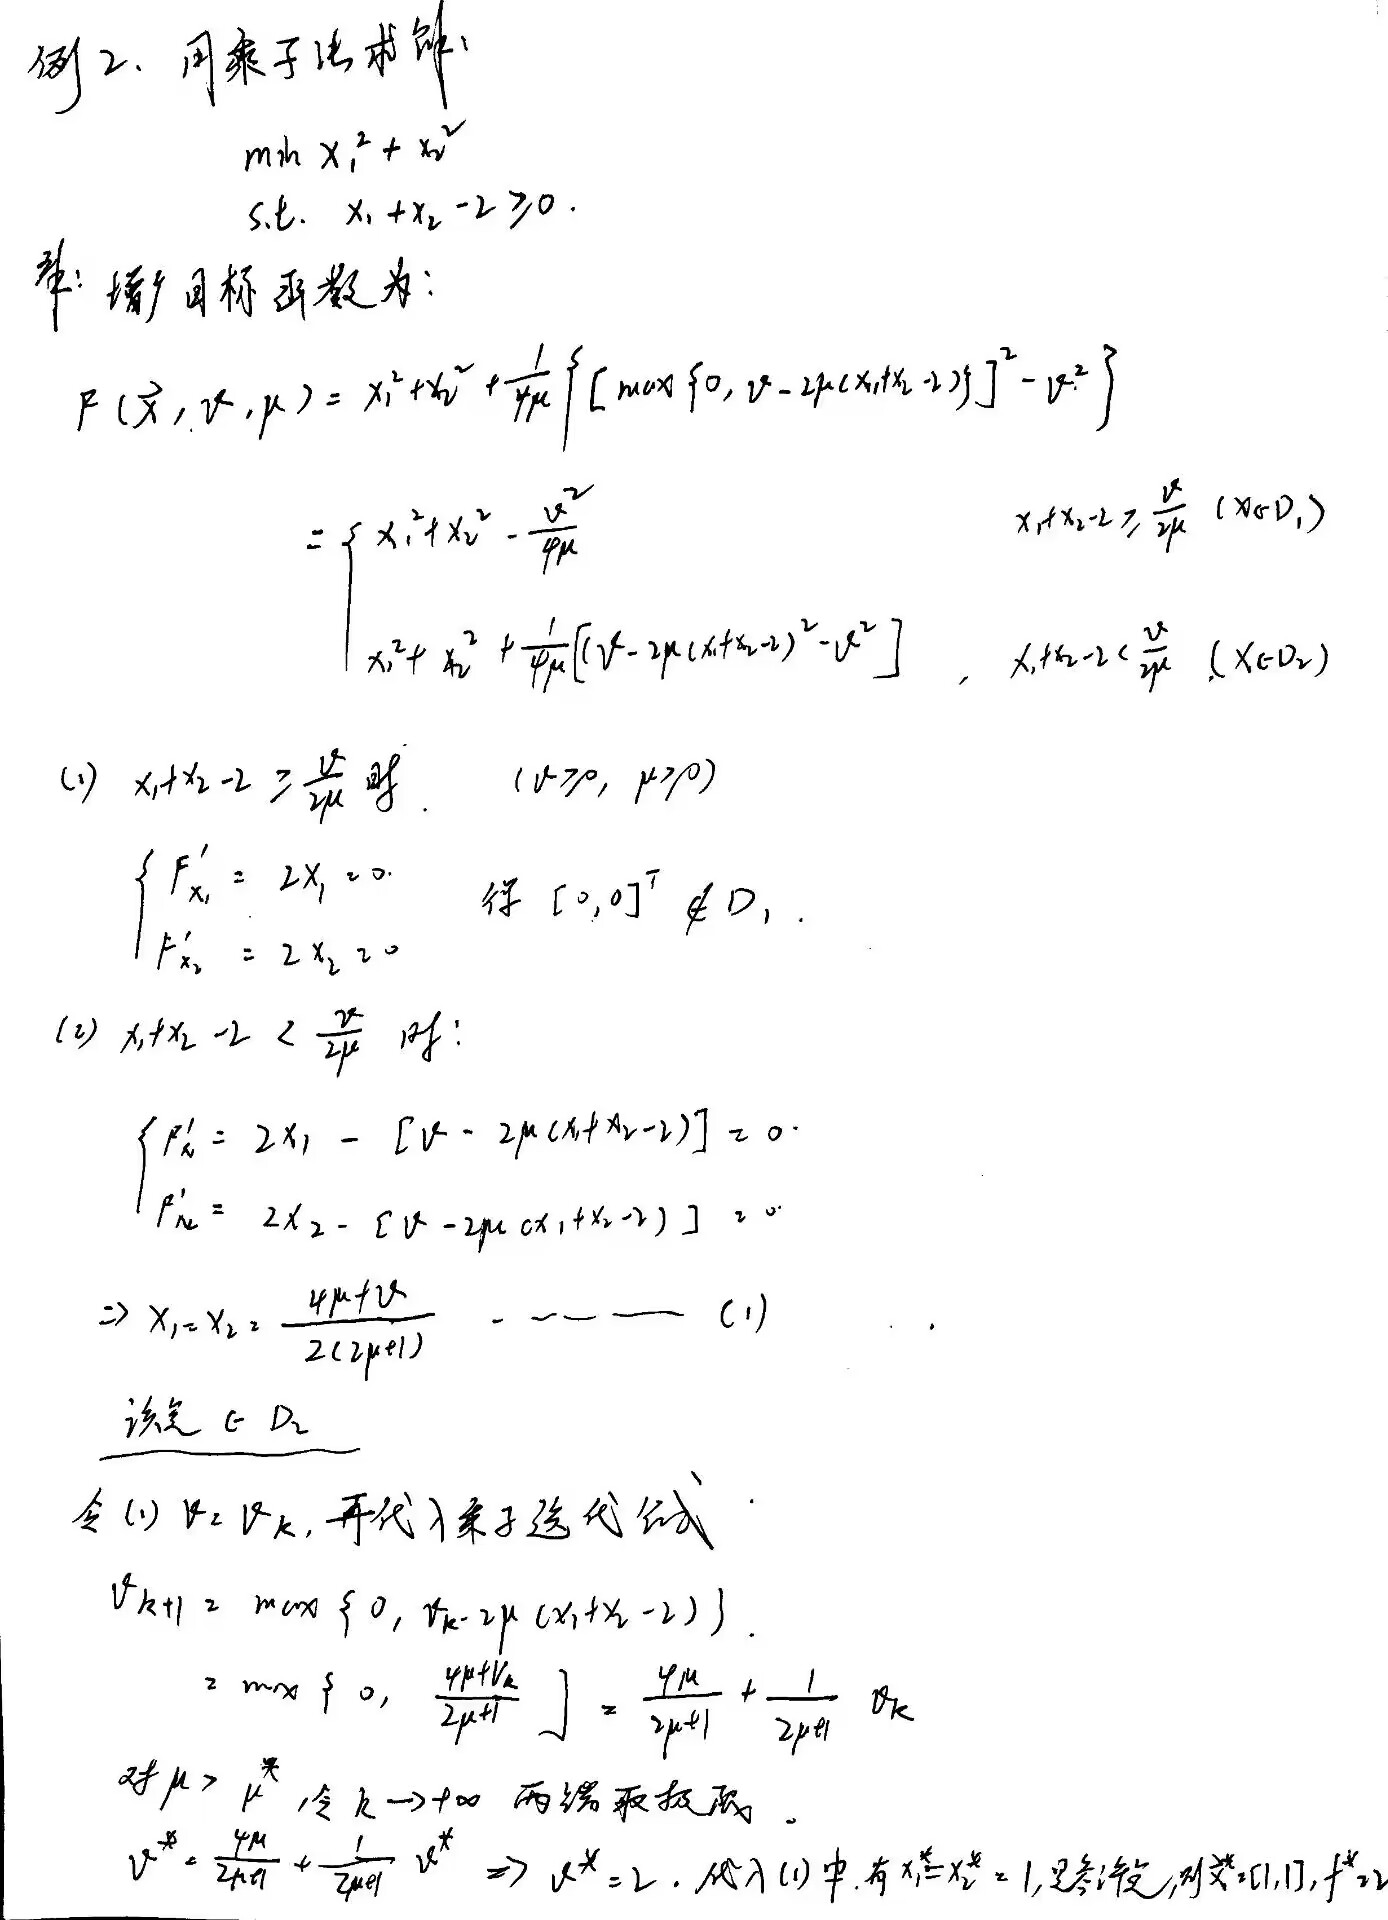 例2. 用乘子法求解:
min x₁² + x₂²
s.t. x₁ + x₂ - 2 ≥ 0.
解: 增广目标函数为:
F(x⃗, v, μ) = x₁² + x₂² + 1/(4μ) { [max{0, v - 2μ(x₁+x₂-2)}]² - v² }
= { x₁² + x₂² - v²/(4μ)   x₁+x₂-2 ≥ v/(2μ) (x∈D₁)
x₁² + x₂² + 1/(4μ) [(v - 2μ(x₁+x₂-2)² - v²] , x₁+x₂-2 < v/(2μ) (x∈D₂)
(1) x₁+x₂-2 ≥ v/(2μ) 时. (v≥0, μ≥0)
{ F'x₁ = 2x₁ = 0. 得 [0,0]ᵀ ∉ D₁.
F'x₂ = 2x₂ = 0
(2) x₁+x₂-2 < v/(2μ) 时:
{ F'x₁ = 2x₁ - [v - 2μ(x₁+x₂-2)] = 0.
F'x₂ = 2x₂ - [v - 2μ(x₁+x₂-2)] = 0.
⇒ x₁ = x₂ = (4μ+v)/(2(2μ+1)) ------ (1)
该点 ∈ D₂
令(1) v = vₖ, 再代入乘子迭代公式
vₖ₊₁ = max{0, vₖ - 2μ(x₁+x₂-2)}.
= max{0, (4μ+vₖ)/(2μ+1)] = 4μ/(2μ+1) + 1/(2μ+1) vₖ
对 μ > μ*, 令 k → +∞ 两端取极限.
v* = 4μ/(2μ+1) + 1/(2μ+1) v* ⇒ v* = 2. 代入(1)中, 有 x₁* = x₂* = 1, 是容许点, 则 x⃗* = [1,1], f* = 2